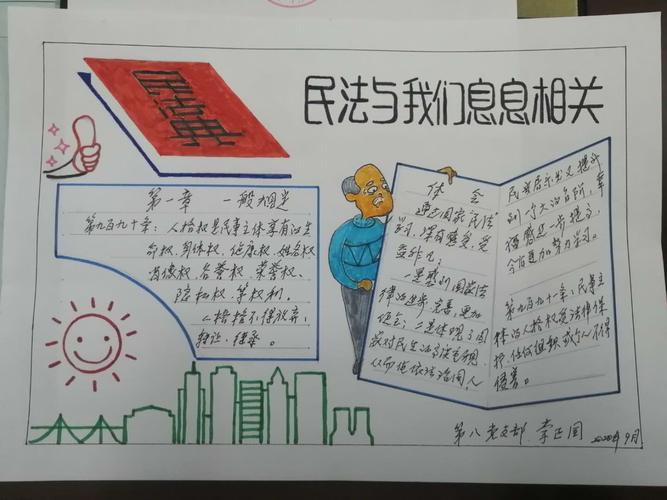 民法典
民法与我们息息相关
第一章 一般规定
第九百九十条：人格权是民事主体享有的生
命权、身体权、健康权、姓名权
肖像权、名誉权、荣誉权、
隐私权等权利。
人格权不得放弃、
转让、继承。
体会
通过国家"民法"
学习，深有感受，受
益非凡：
一是感到国家法
律的进步、完善，更加
健全；二是体现了国
家对民生
从而使依法治国，人
民
到一个大的台阶，幸
福感进一步提高，
今后更加努力学习。
第九百九十一条：民事主
体的人格权受法律保
护，任何组织或个人不得
侵害。
第八党支部 李正国
2020年9月